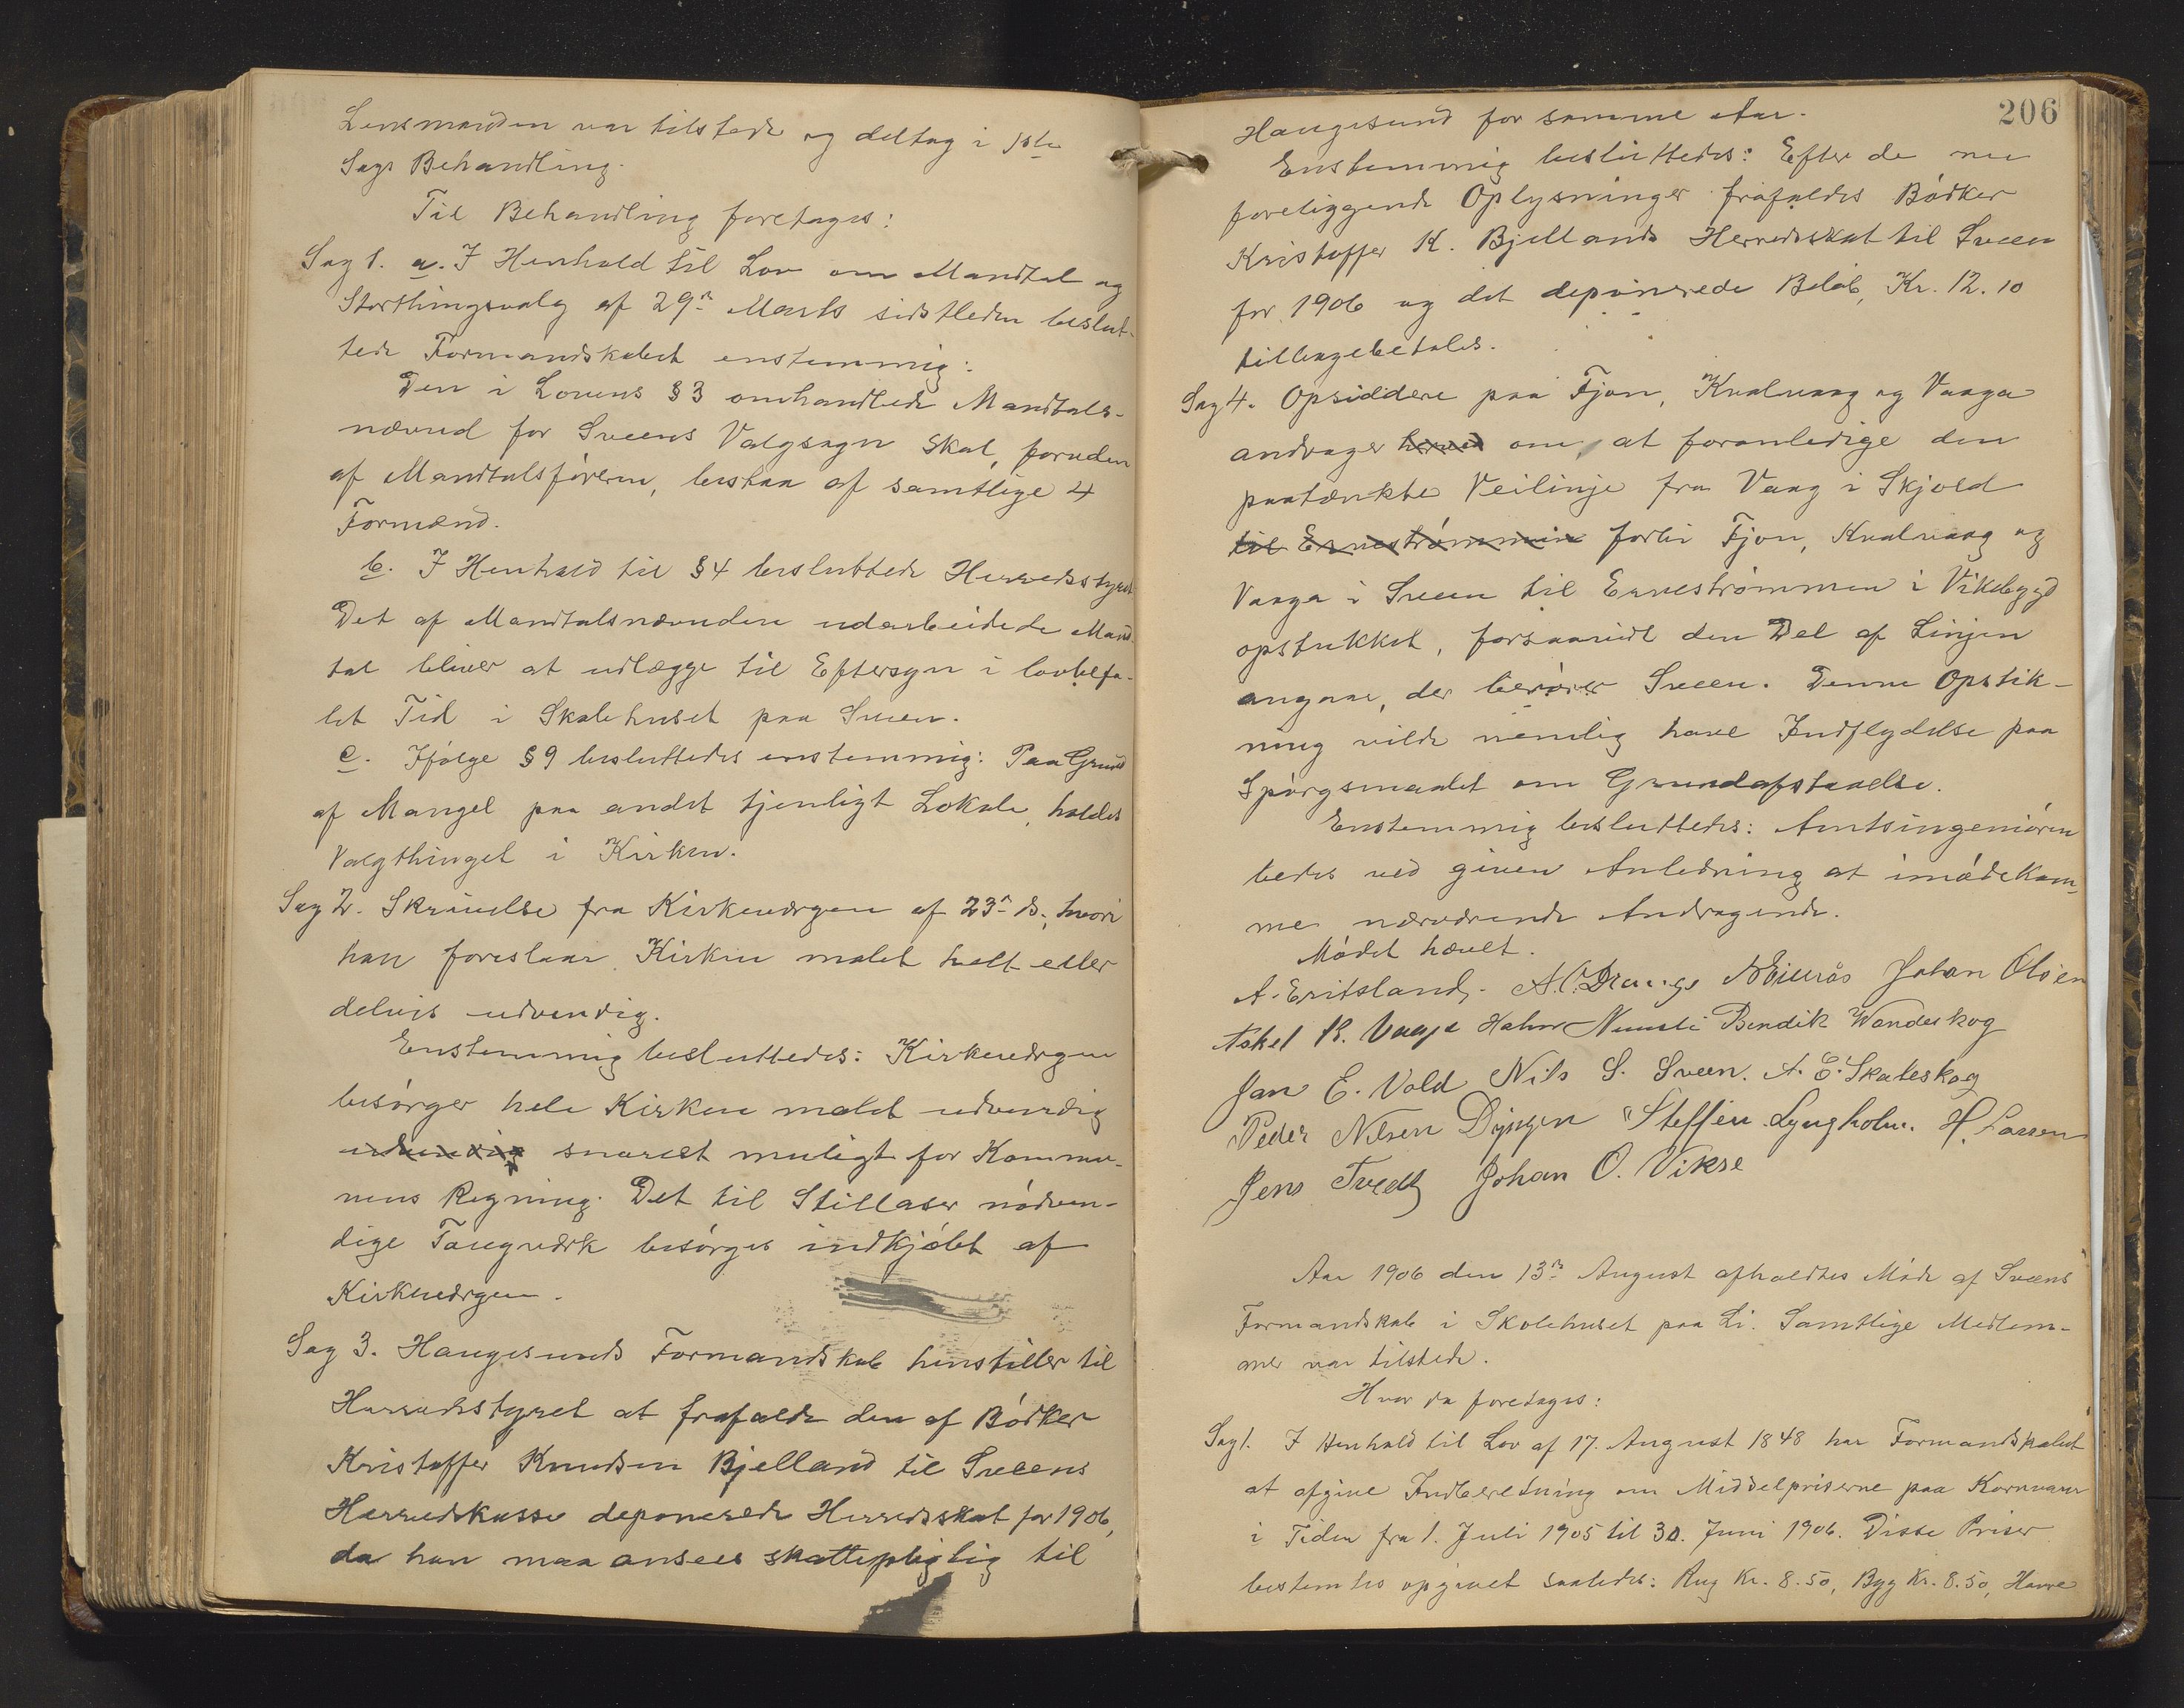 Lensmanden var tilstede og deltog i 1ste
Sags Behandling.
Til Behandling foretoges:
Sag 1. a. I Henhold til Lov om Mandtal og
Storthingsvalg af 29n Marts sidstleden beslut-
tede Formandskabet enstemmig:
Den i Lovens § 3 omhandlede Mandtals-
nævnd for Sveens Valgsogn skal, foruden
af Mandtalsføreren, bestaa af samtlige 4
Formænd.
b. I Henhold til § 4 besluttede Herredsstyret
Det af Mandtalsnævnden udarbeidede Mand
tal bliver at udlægge til Eftersyn i lovbefa-
let Tid i Skolehuset paa Sveen.
c. Ifølge § 9 besluttedes enstemmig: Paa Grund
af Mangel paa andet tjenligt Lokale, holdes
Valgthinget i Kirken.
Sag 2. Skrivelse fra Kirkeværgen af 23n ds., hvori
han foreslaar Kirken malet helt eller
delvis udvendig.
Enstemmig besluttedes: Kirkeværgen
besørger hele Kirken malet udvendig
udvendig snarest muligt for Kommu-
nens Regning. Det til Stillaser nødven-
dige Taugværk besørges indkjøbt af
Kirkeværgen.
Sag 3. Haugesunds Formandskab henstiller til
Herredsstyret at frafalde den af Bødker
Kristoffer Knudsen Bjelland til Sveens
Herredskasse deponerede Herredsskat for 1906,
da han maa ansees skattepligtig til
206
Haugesund for samme Aar.
Enstemmig besluttedes: Efter de nu
foreliggende Oplysninger frafaldes Bødker
Kristoffer K. Bjellands Herredsskat til Sveen
for 1906 og det deponerede Beløb, Kr. 12.10
tilbagebetales.
Sag 4. Opsiddere paa Fjon, Kvalvaag og Vaaga
andrager herved om, at foranledige den
paatænkte Veilinje fra Vaag i Skjold
til Ernestrømmen forbi Fjon, Kvalvaag og
Vaaga i Sveen til Ernestrømmen i Vikebygd
opstukket, forsaavidt den Del af Linjen
angaar, der berører Sveen. Denne Opstik-
ning vilde nemlig have Indflydelse paa
Spørgsmaalet om Grundafstaaelse.
Enstemmig besluttedes: Amtsingeniøren
bedes ved given Anledning at imødekom-
me nærværende Andragende.
Mødet hævet.
A. Eritsland. A. O. Drange Johan Olsen
Askel K. Vaage Nils Bendik Wandeskog
Jan E. Vold Nils S. Sveen. A. E. Skateskog
Peder Nilsen Dyngen Steffen Lyngholm. H. Larsen
Jens Tvedt Johan O. Vikse
Aar 1906 den 13n August afholdtes Møde af Sveens
Formandskab i Skolehuset paa Li. Samtlige Medlem-
mer var tilstede.
Hvor da foretoges:
Sag 1. I Henhold til Lov af 17. August 1848 har Formandskabet
at afgive Indberetning om Middelpriserne paa Kornvarer
i Tiden fra 1. Juli 1905 til 30. Juni 1906. Disse Priser
bestemtes opgivet saaledes: Rug Kr. 8.50, Byg Kr. 8.50, Havre